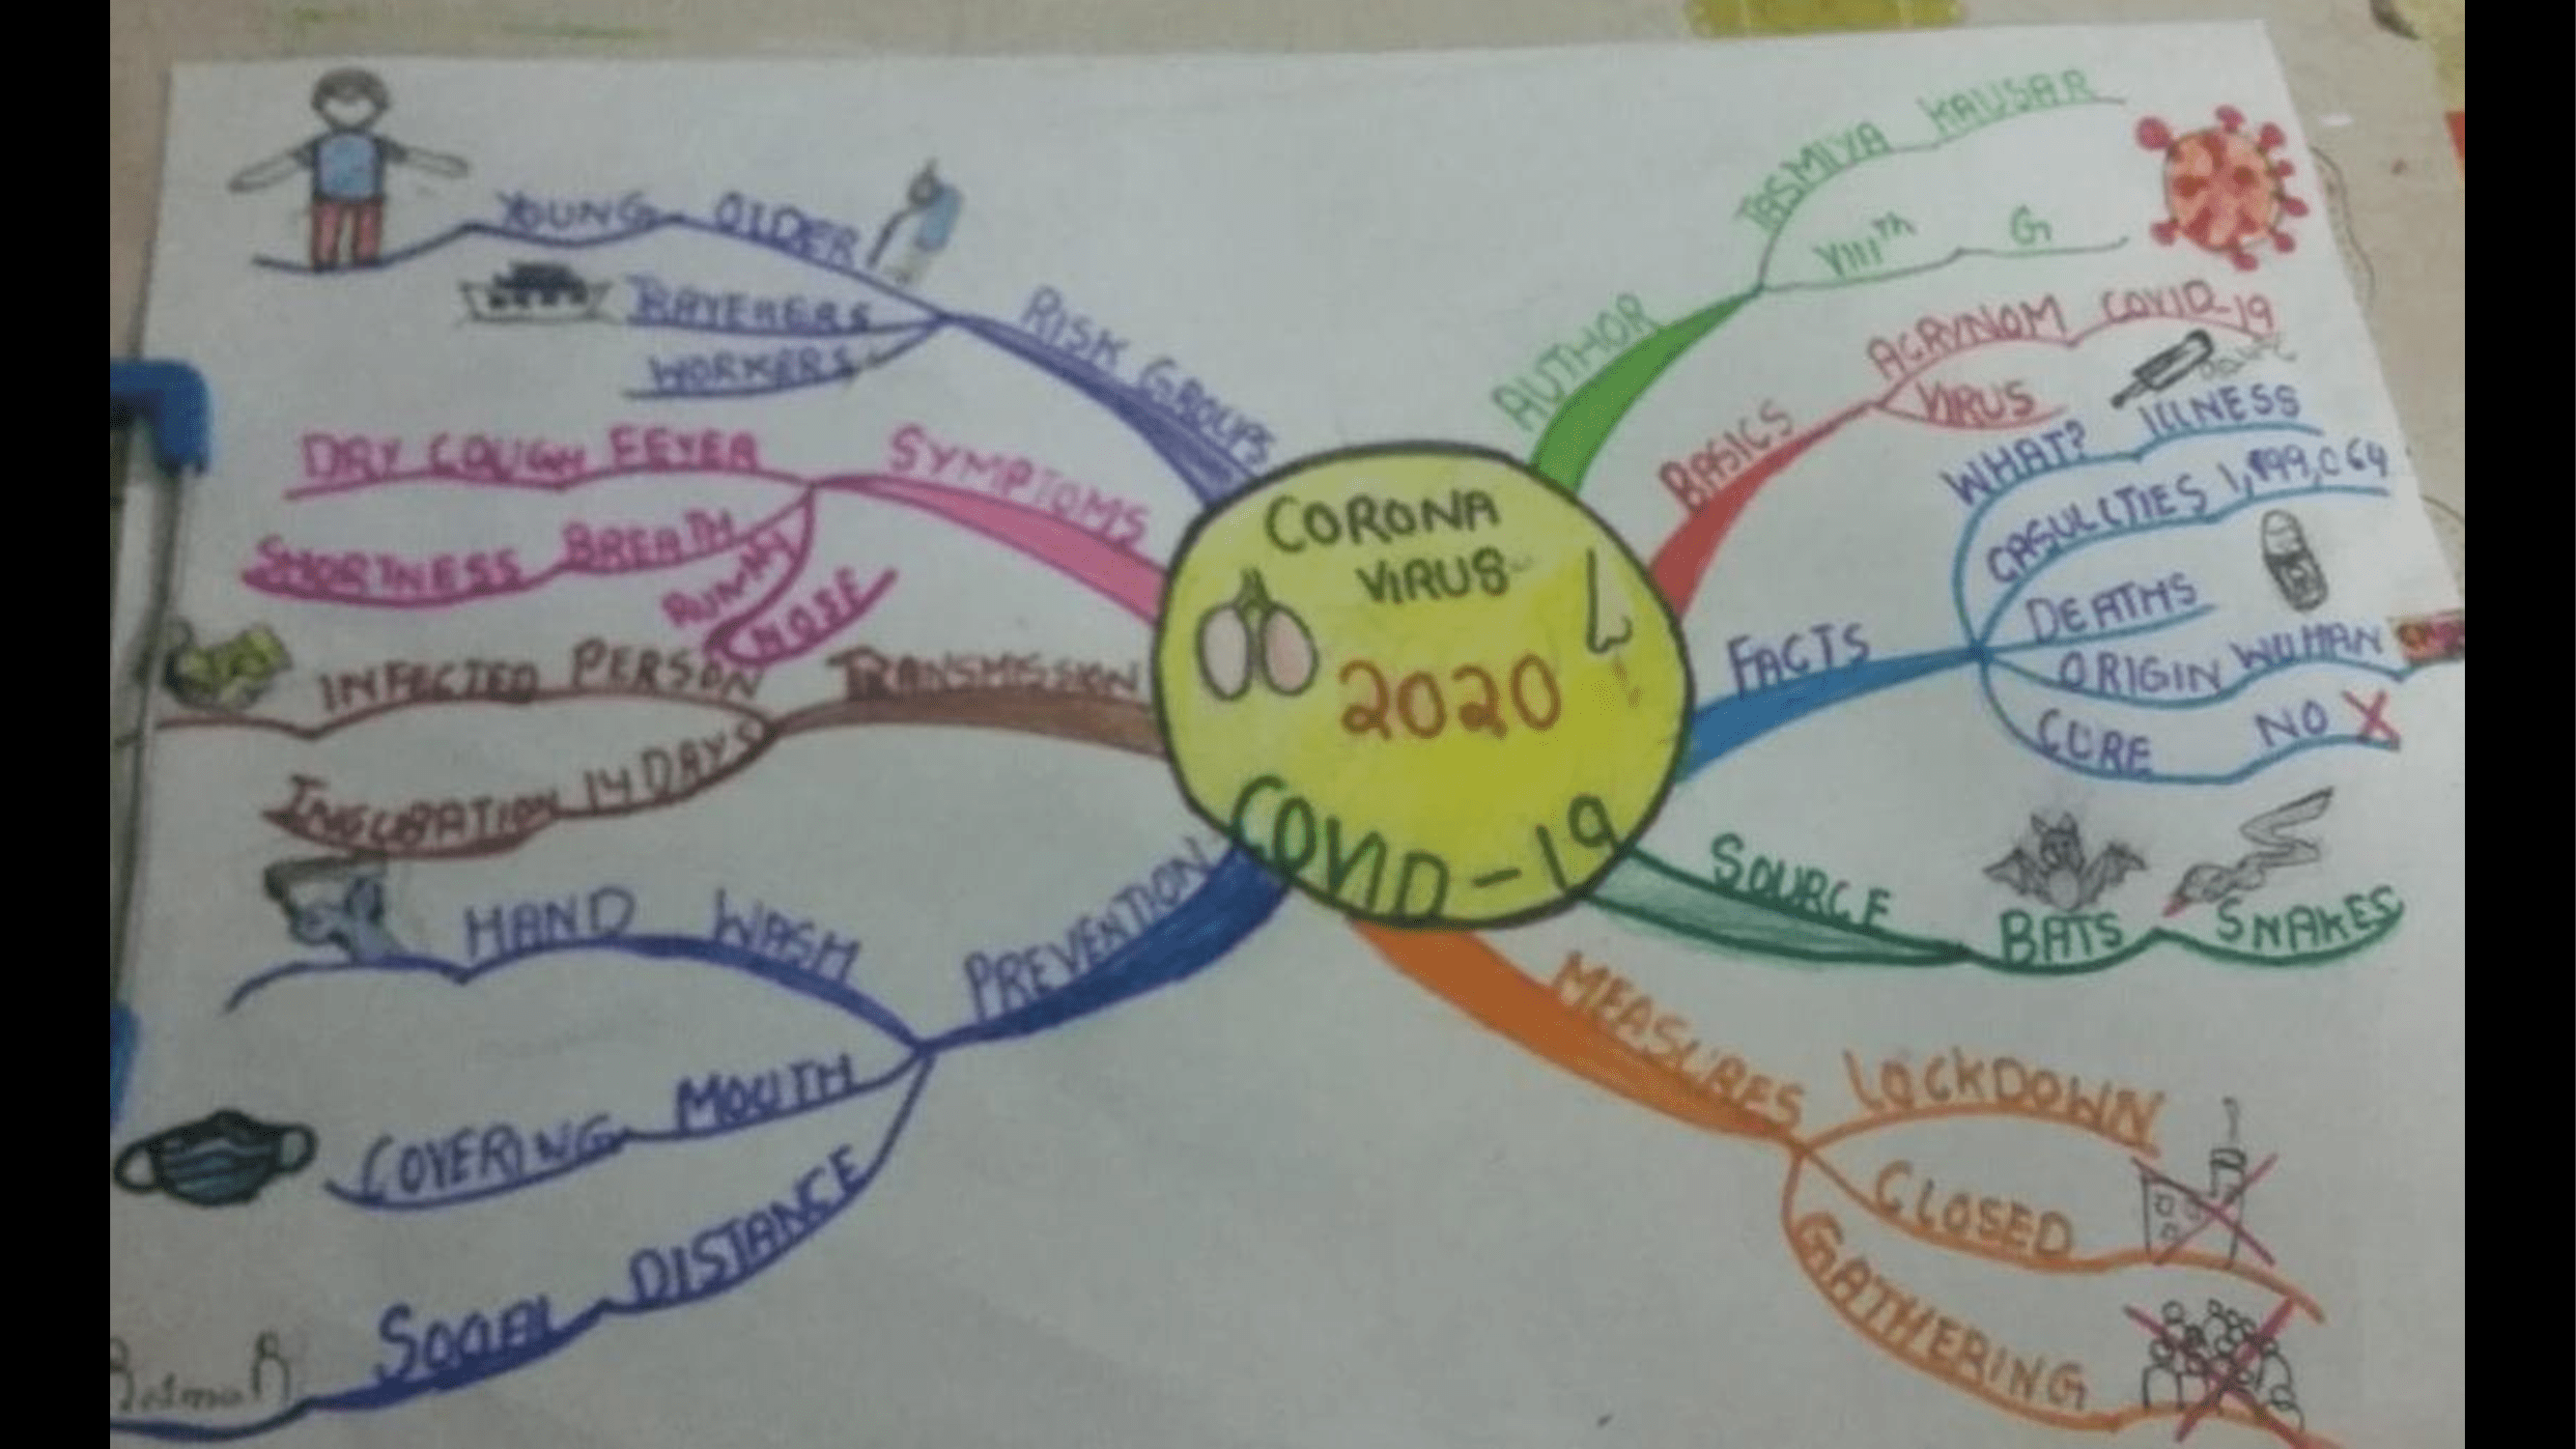 CORONA
VIRUS
2020
COVID-19
AUTHOR
TASMIYA KAUSAR
VIIITH G
BASICS
ACRYNOM COVID-19
VIRUS
FACTS
WHAT? ILLNESS
CASULLTIES
DEATHS
ORIGIN WUHAN
CURE NO
SOURCE
BATS SNAKES
MEASURES
LOCKDOWN
CLOSED
GATHERING
RISK GROUPS
YOUNG OLDER
WORKERS
SYMPTOMS
DRY COUGH FEVER
SHORTNESS BREATH
NOSE
TRANSMISSION
INFECTED PERSON
14 DAYS
PREVENTION
HAND WASH
COVERING MOUTH
SOCIAL DISTANCE